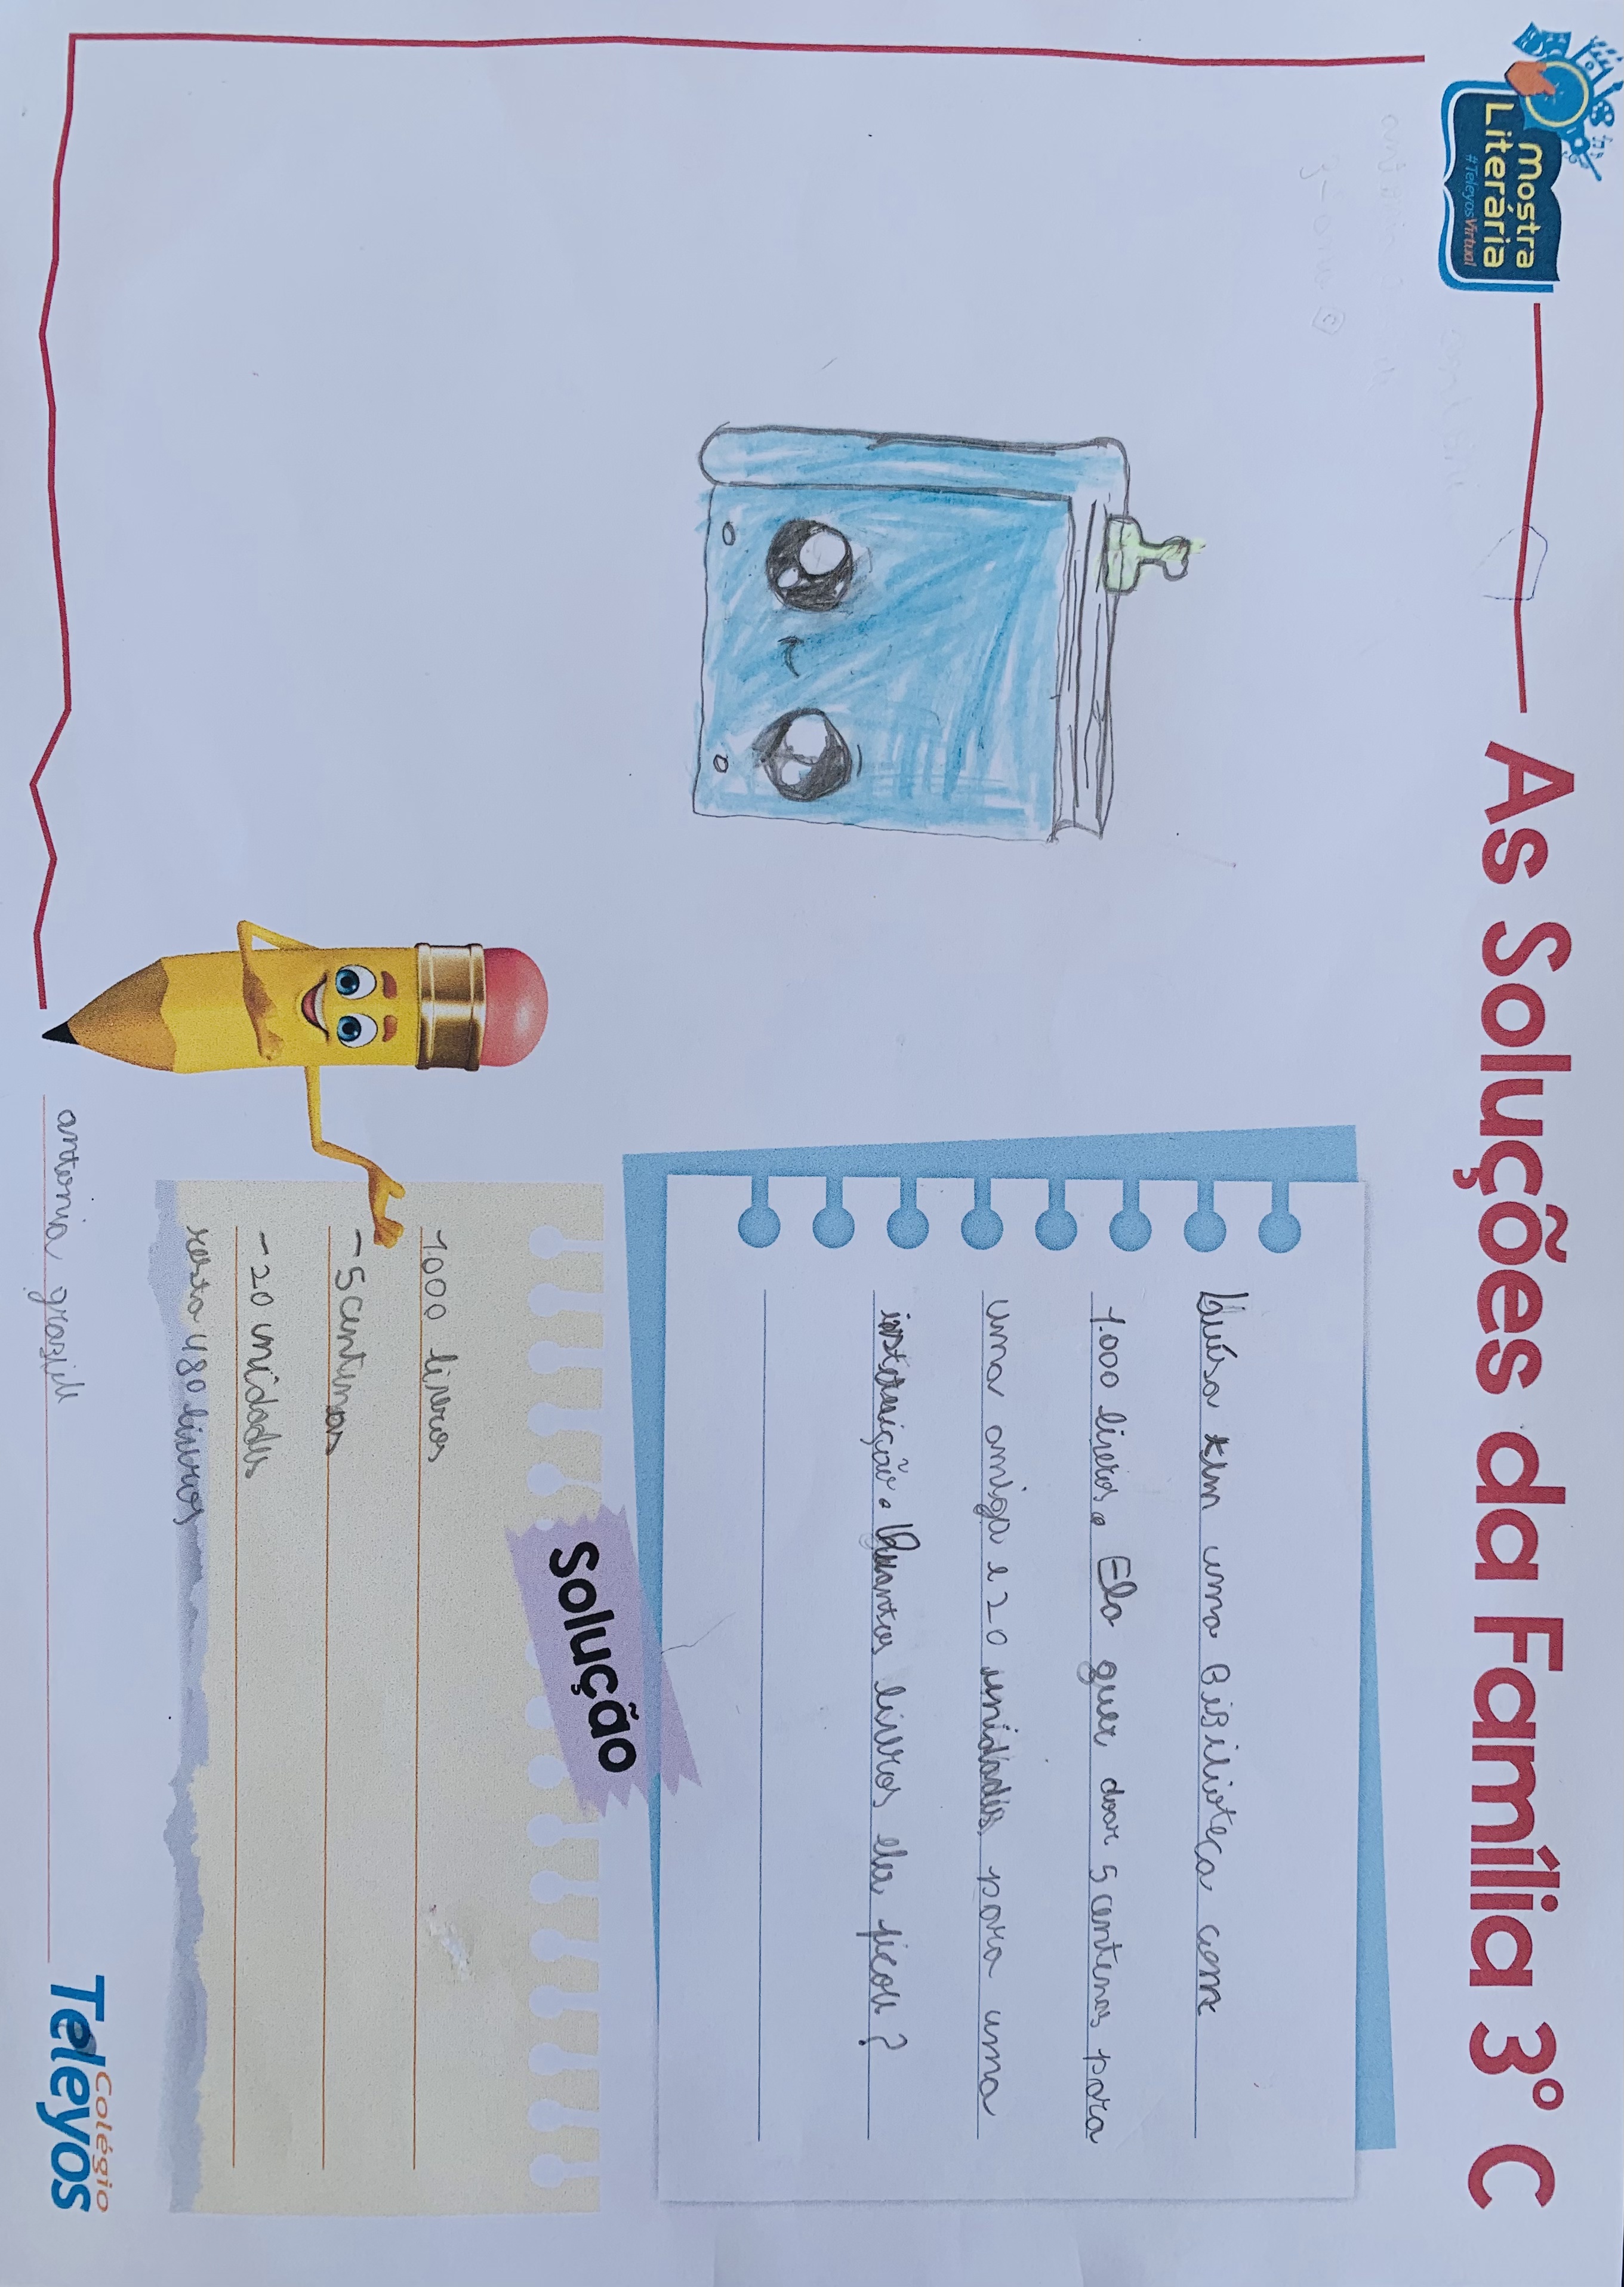 As Soluções da Família 3º C
Mostra
Literária
#TeleyosVirtual
Luísa tem uma Biblioteca com
1.000 livros. Ela quer doar 5 centenas para
uma amiga e 20 unidades para uma
instituição. Quantos livros ela ficou?
Solução
1000 livros
- 5 centenas
- 20 unidades
resta 480 livros
antonia
Colégio
Teleyos